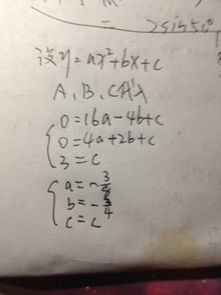 = 2sin50°
设y=ax²+bx+c
A、B、C代入
0=16a-4b+c
0=4a+2b+c
3=c
a=-3/8
b=-3/4
c=c